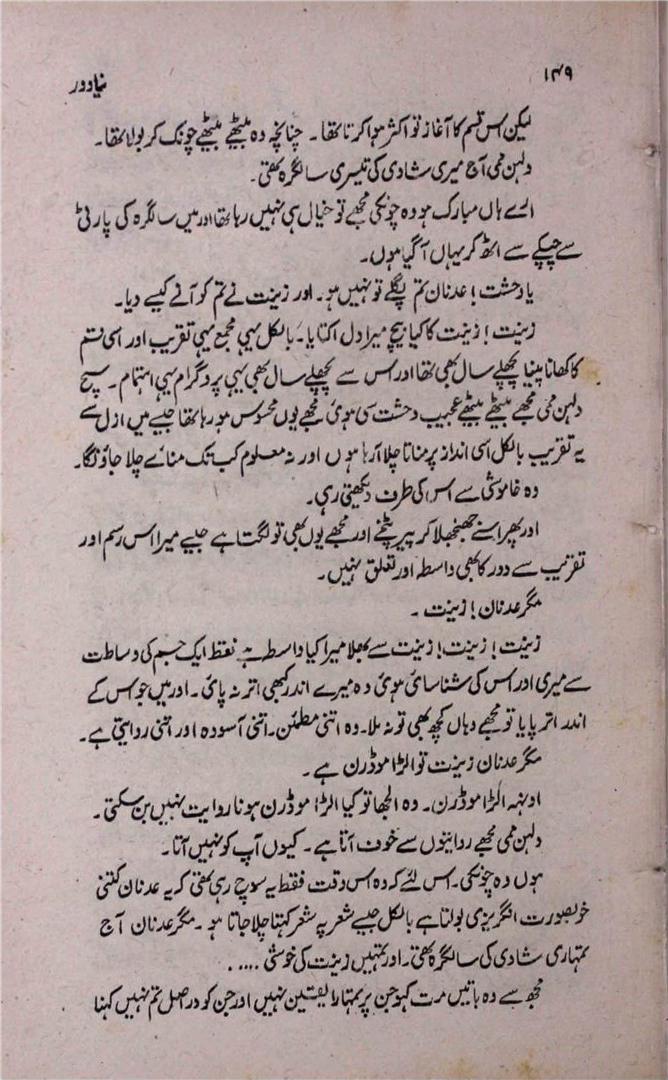 ۱۴۹
نیا دور
لیکن اس قسم کا آغاز تو اکثر ہوا کرتا تھا۔ چنانچہ وہ بیٹھے بیٹھے چونک کر بولا تھا۔
دلہن ممی آج میری شادی کی تیسری سالگرہ تھی۔
ارے ہاں مبارک ہو وہ چونکی مجھے تو خیال ہی نہیں رہا تھا اور میں سالگرہ کی پارٹی
سے چپکے سے اٹھ کر یہاں آ گیا ہوں۔
یا وحشت! عدنان تم پگلے تو نہیں ہو۔ اور زینت نے تم کو آنے کیسے دیا۔
زینت! زینت کا کیا بیچ میرا دل اکتایا۔ بالکل یہی مجمع یہی تقریب اور اسی قسم
کا کھانا پینا پچھلے سال بھی تھا اور اس سے پچھلے سال بھی یہی پروگرام یہی اہتمام۔ سچ
دلہن ممی مجھے بیٹھے بیٹھے عجیب وحشت سی ہوئی مجھے یوں محسوس ہو رہا تھا جیسے میں ازل سے
یہ تقریب بالکل اسی انداز پر مناتا چلا آرہا ہوں اور نہ معلوم کب تک منائے چلا جاؤں گا۔
وہ خاموشی سے اس کی طرف دیکھتی رہی۔
اور پھر اسنے جھنجھلا کر پیر پٹخے اور مجھے یوں بھی تو لگتا ہے جیسے میرا اس رسم اور
تقریب سے دور کا بھی واسطہ اور تعلق نہیں۔
مگر عدنان! زینت ۔
زینت! زینت! زینت سے بھلا میرا کیا واسطہ ہے فقط ایک جسم کی وساطت
سے میری اور اس کی شناسائی ہوئی وہ میرے اندر کبھی اتر نہ پائی۔ اور میں جو اس کے
اندر اتر پایا تو مجھے وہاں کچھ بھی تو نہ ملا۔ وہ اتنی مطمئن۔ اتنی آسودہ اور اتنی روایتی ہے۔
مگر عدنان زینت تو الٹرا موڈرن ہے ۔
اونہہ الٹرا موڈرن۔ وہ الجھا تو کیا الٹرا موڈرن ہونا روایت نہیں بن سکتی۔
دلہن ممی مجھے روایتوں سے خوف آتا ہے۔ کیوں آپ کو نہیں آتا۔
ہوں وہ چونکی۔ اس لئے کہ وہ اس وقت فقط یہ سوچ رہی تھی کہ یہ عدنان کتنی
خوبصورت انگریزی بولتا ہے بالکل جیسے شعر پہ شعر کہتا چلا جاتا ہو۔ مگر عدنان آج
تمہاری شادی کی سالگرہ تھی۔ اور تمہیں زینت کی خوشی .....
مجھ سے وہ باتیں مت کہو جن پر تمہارا یقین نہیں اور جن کو دراصل تم نہیں کہنا